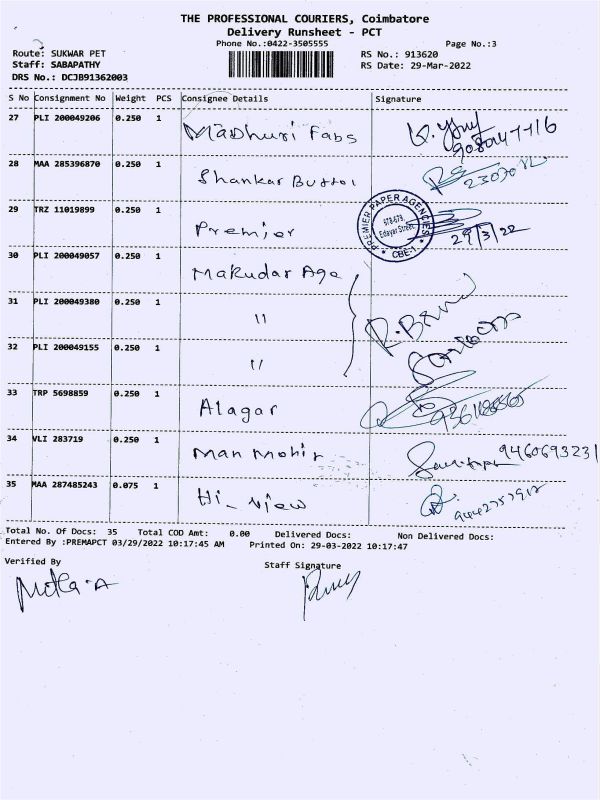 THE PROFESSIONAL COURIERS, Coimbatore
Delivery Runsheet - PCT
Phone No.:0422-3505555
Page No.:3
Route: SUKWAR PET
RS No.: 913620
Staff: SABAPATHY
RS Date: 29-Mar-2022
DRS No.: DCJB91362003
S No Consignment No Weight PCS Consignee Details Signature
27 PLI 200049206 0.250 1 Madhuri Fabs
28 MAA 285396870 0.250 1 Shankar Button
29 TRZ 11019899 0.250 1 Premier 29/3/22
PREMIER PAPER AGENCIES
Edayar Street,
CBE-1
30 PLI 200049057 0.250 1 Makudar Age
31 PLI 200049380 0.250 1 "
32 PLI 200049155 0.250 1 "
33 TRP 5698859 0.250 1 Alagar
34 VLI 283719 0.250 1 Man Mohir 9460693231
35 MAA 287485243 0.075 1 Hi-View
Total No. Of Docs: 35 Total COD Amt: 0.00 Delivered Docs: Non Delivered Docs:
Entered By :PREMAPCT 03/29/2022 10:17:45 AM Printed On: 29-03-2022 10:17:47
Verified By Staff Signature